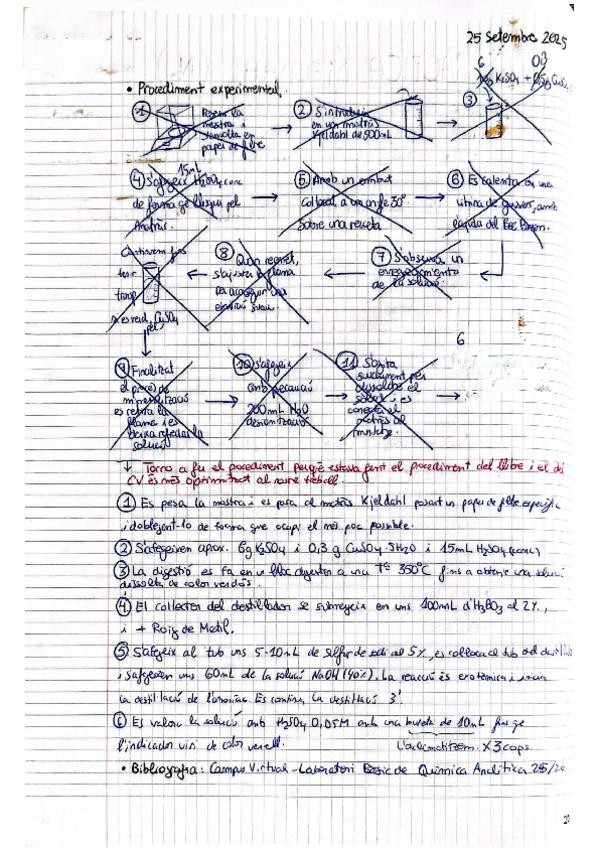 25 Setembre 2025
• Procediment experimental
6 0,3
K2SO4 + CuSO4
1 Pesem la
mostra i
en
paper de
2 S'introdueix
en un matràs
Kjeldahl de 500mL
3
15mL
4 S'afegeix H2SO4 conc
de forma que llisqui pel
matràs.
5 Amb un embut
col·locat a un angle 30°
sobre una reixeta
6 Es calenta en una
vitrina de gasos, amb
l'ajuda del Bec Bunsen.
7 S'observa un
enegriment
de la solució.
8 Quan
s'ajusta la flama
una
ebullició suau.
Continuem fins
CuSO4
9 Finalitzat
el procés de
mineralització
es retira la
flama i es
deixa refredar la
solució
10 S'afegeix
amb precaució
200mL H2O
desionitzada
6
11 S'agita
suaument per
dissoldre el
sòlid i es
connecta el
matràs al
muntatge.
↓ Torno a fer el procediment perquè estava fent el procediment del llibre i el del
CV és més optimitzat al nostre treball.
1 Es pesa la mostra i es posa al matràs Kjeldahl posant un paper de específic
i doblegant-lo de forma que ocupi el més poc possible.
2 S'afegeixen aprox. 6g K2SO4 i 0,3 g CuSO4·5H2O i 15mL H2SO4 (conc)
3 La digestió es fa en un bloc digestor a una Tº 350°C fins a obtenir una solució
de color verdós.
4 El col·lector del destil·lador se submergeix en uns 100mL d'H3BO3 al 2%,
i + Roig de Metil.
5 S'afegix al tub uns 5-10mL de sulfur de sodi al 5%, es col·loca al tub del destil·lador
i s'afegeixen uns 60mL de la solució NaOH (40%). La reacció és exotèrmica i inicia
la destil·lació de l'amoníac. Es continua la destil·lació 3'.
6 Es valora la solució amb H2SO4 0,05M amb una bureta de 10mL fins que
l'indicador viri de color vermell. L'aclimatitzem. X3 cops
• Bibliografia: Campus Virtual - Laboratori Bàsic de Química Analítica 25/26